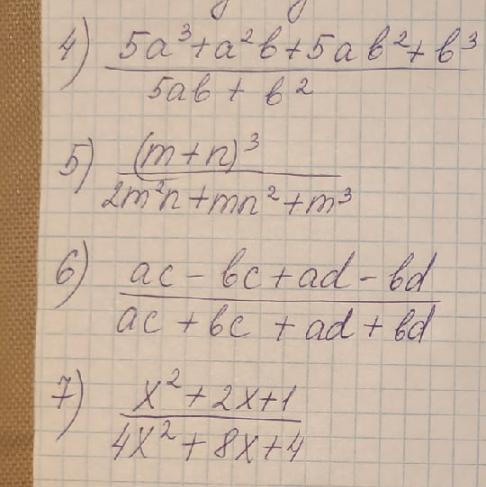 4) 5a³+a²b+5ab²+b³
5ab + b²
5) (m+n)³
2m²n+mn²+m³
6) ac - bc + ad - bd
ac + bc + ad + bd
7) x² + 2x+1
4x² + 8x+4